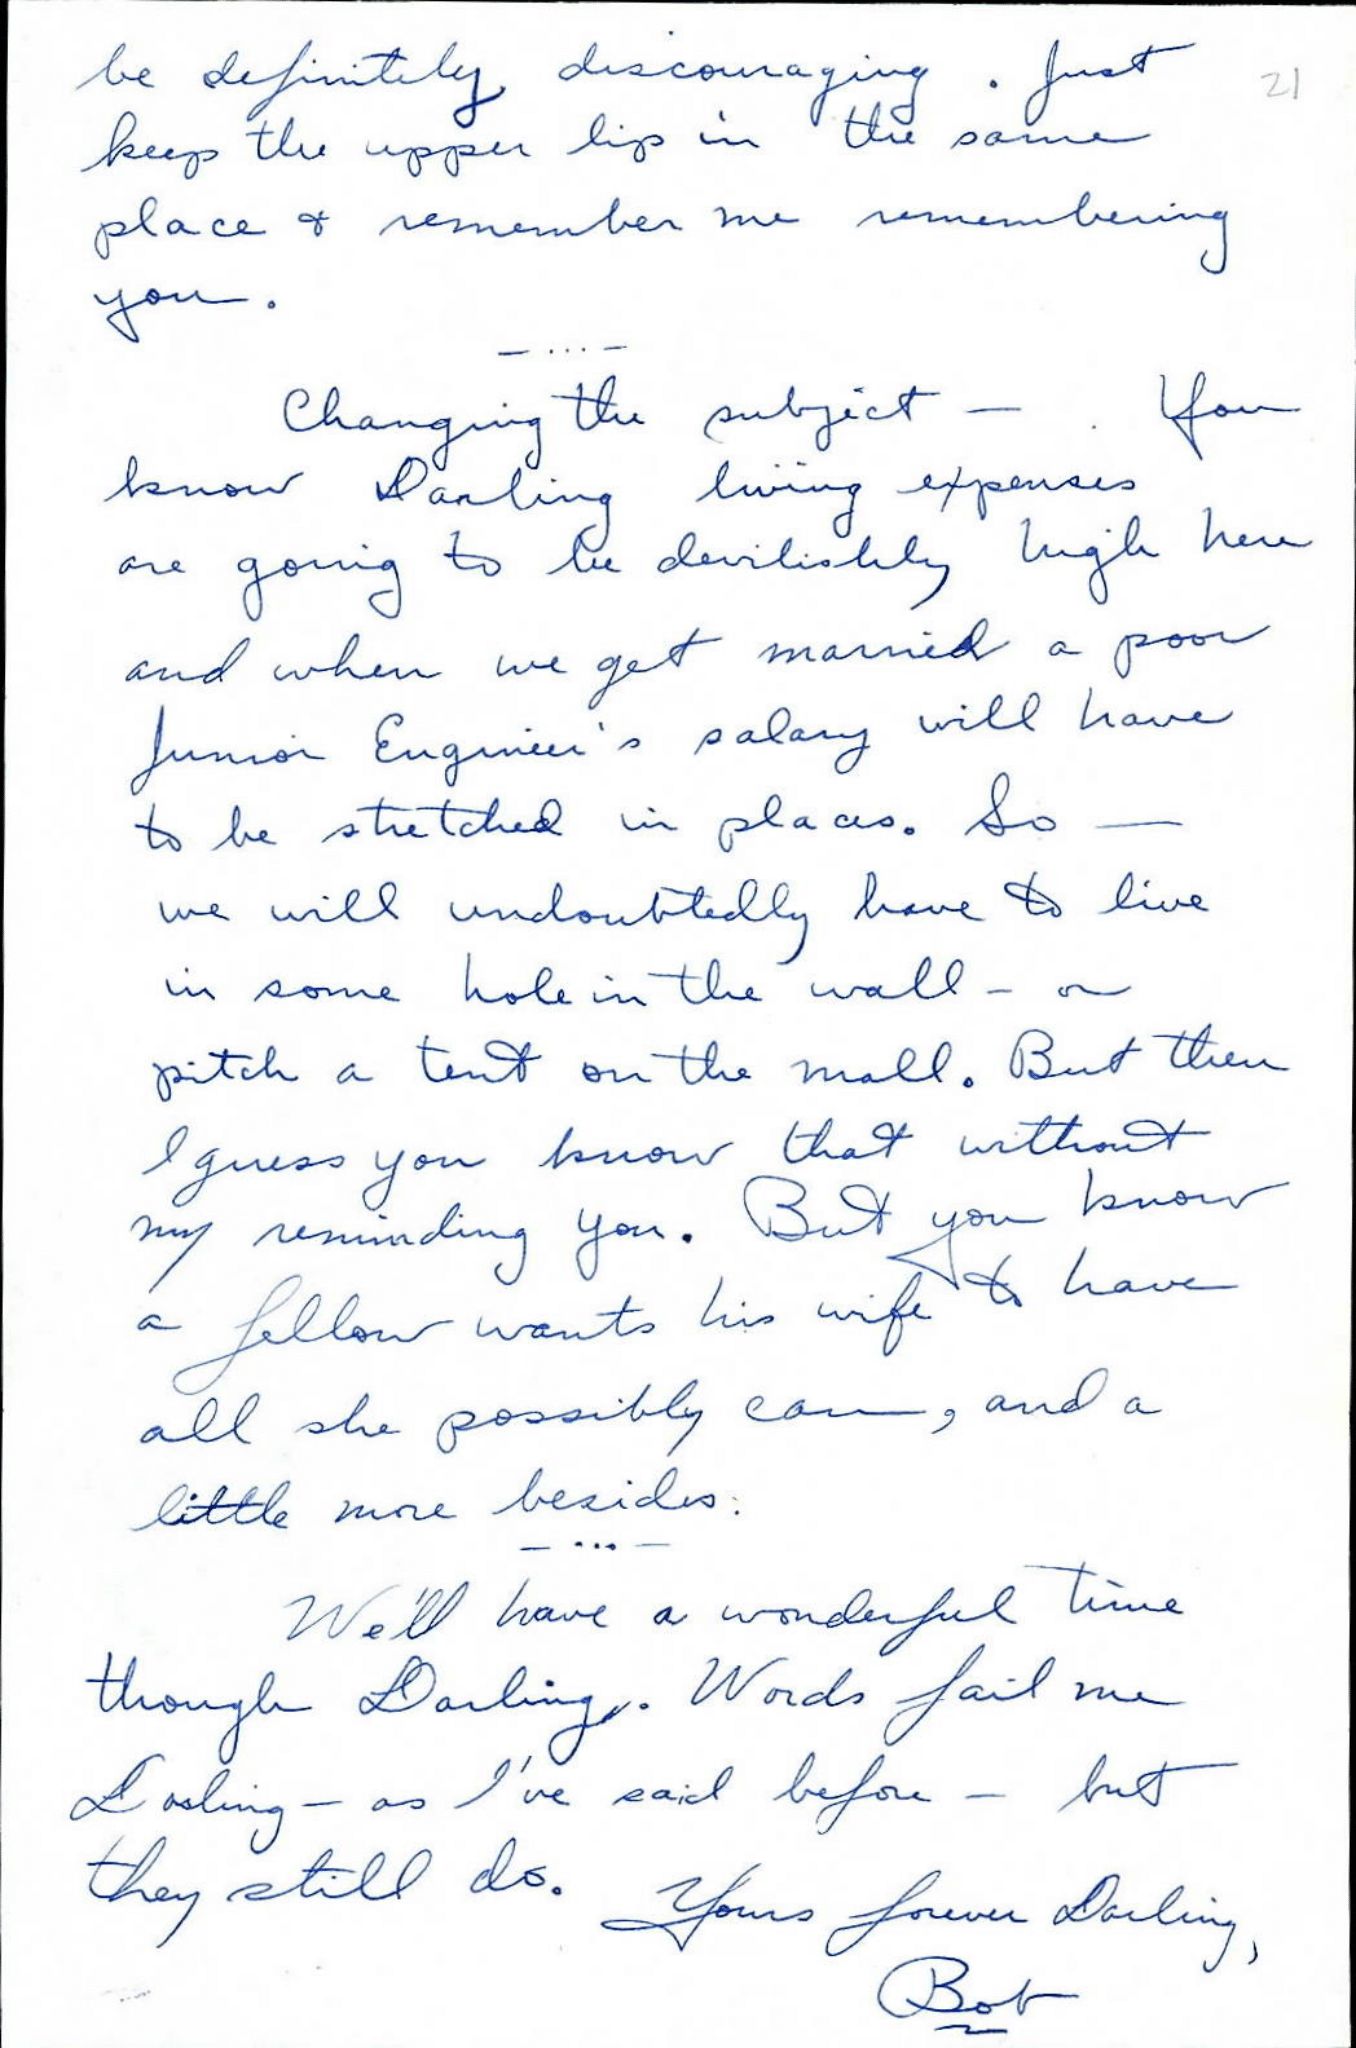 be definitely discouraging. Just
21
keep the upper lip in the same
place & remember me remembering
you.
– ... –
Changing the subject — You
know Darling living expenses
are going to be devilishly high here
and when we get married a poor
Junior Engineer's salary will have
to be stretched in places. So —
we will undoubtedly have to live
in some hole in the wall – or
pitch a tent on the mall. But then
I guess you know that without
my reminding you. But you know
a fellow wants his wife to have
all she possibly can, and a
little more besides.
– ... –
We'll have a wonderful time
though Darling. Words fail me
Darling – as I've said before – but
they still do.
Yours forever Darling,
Bob